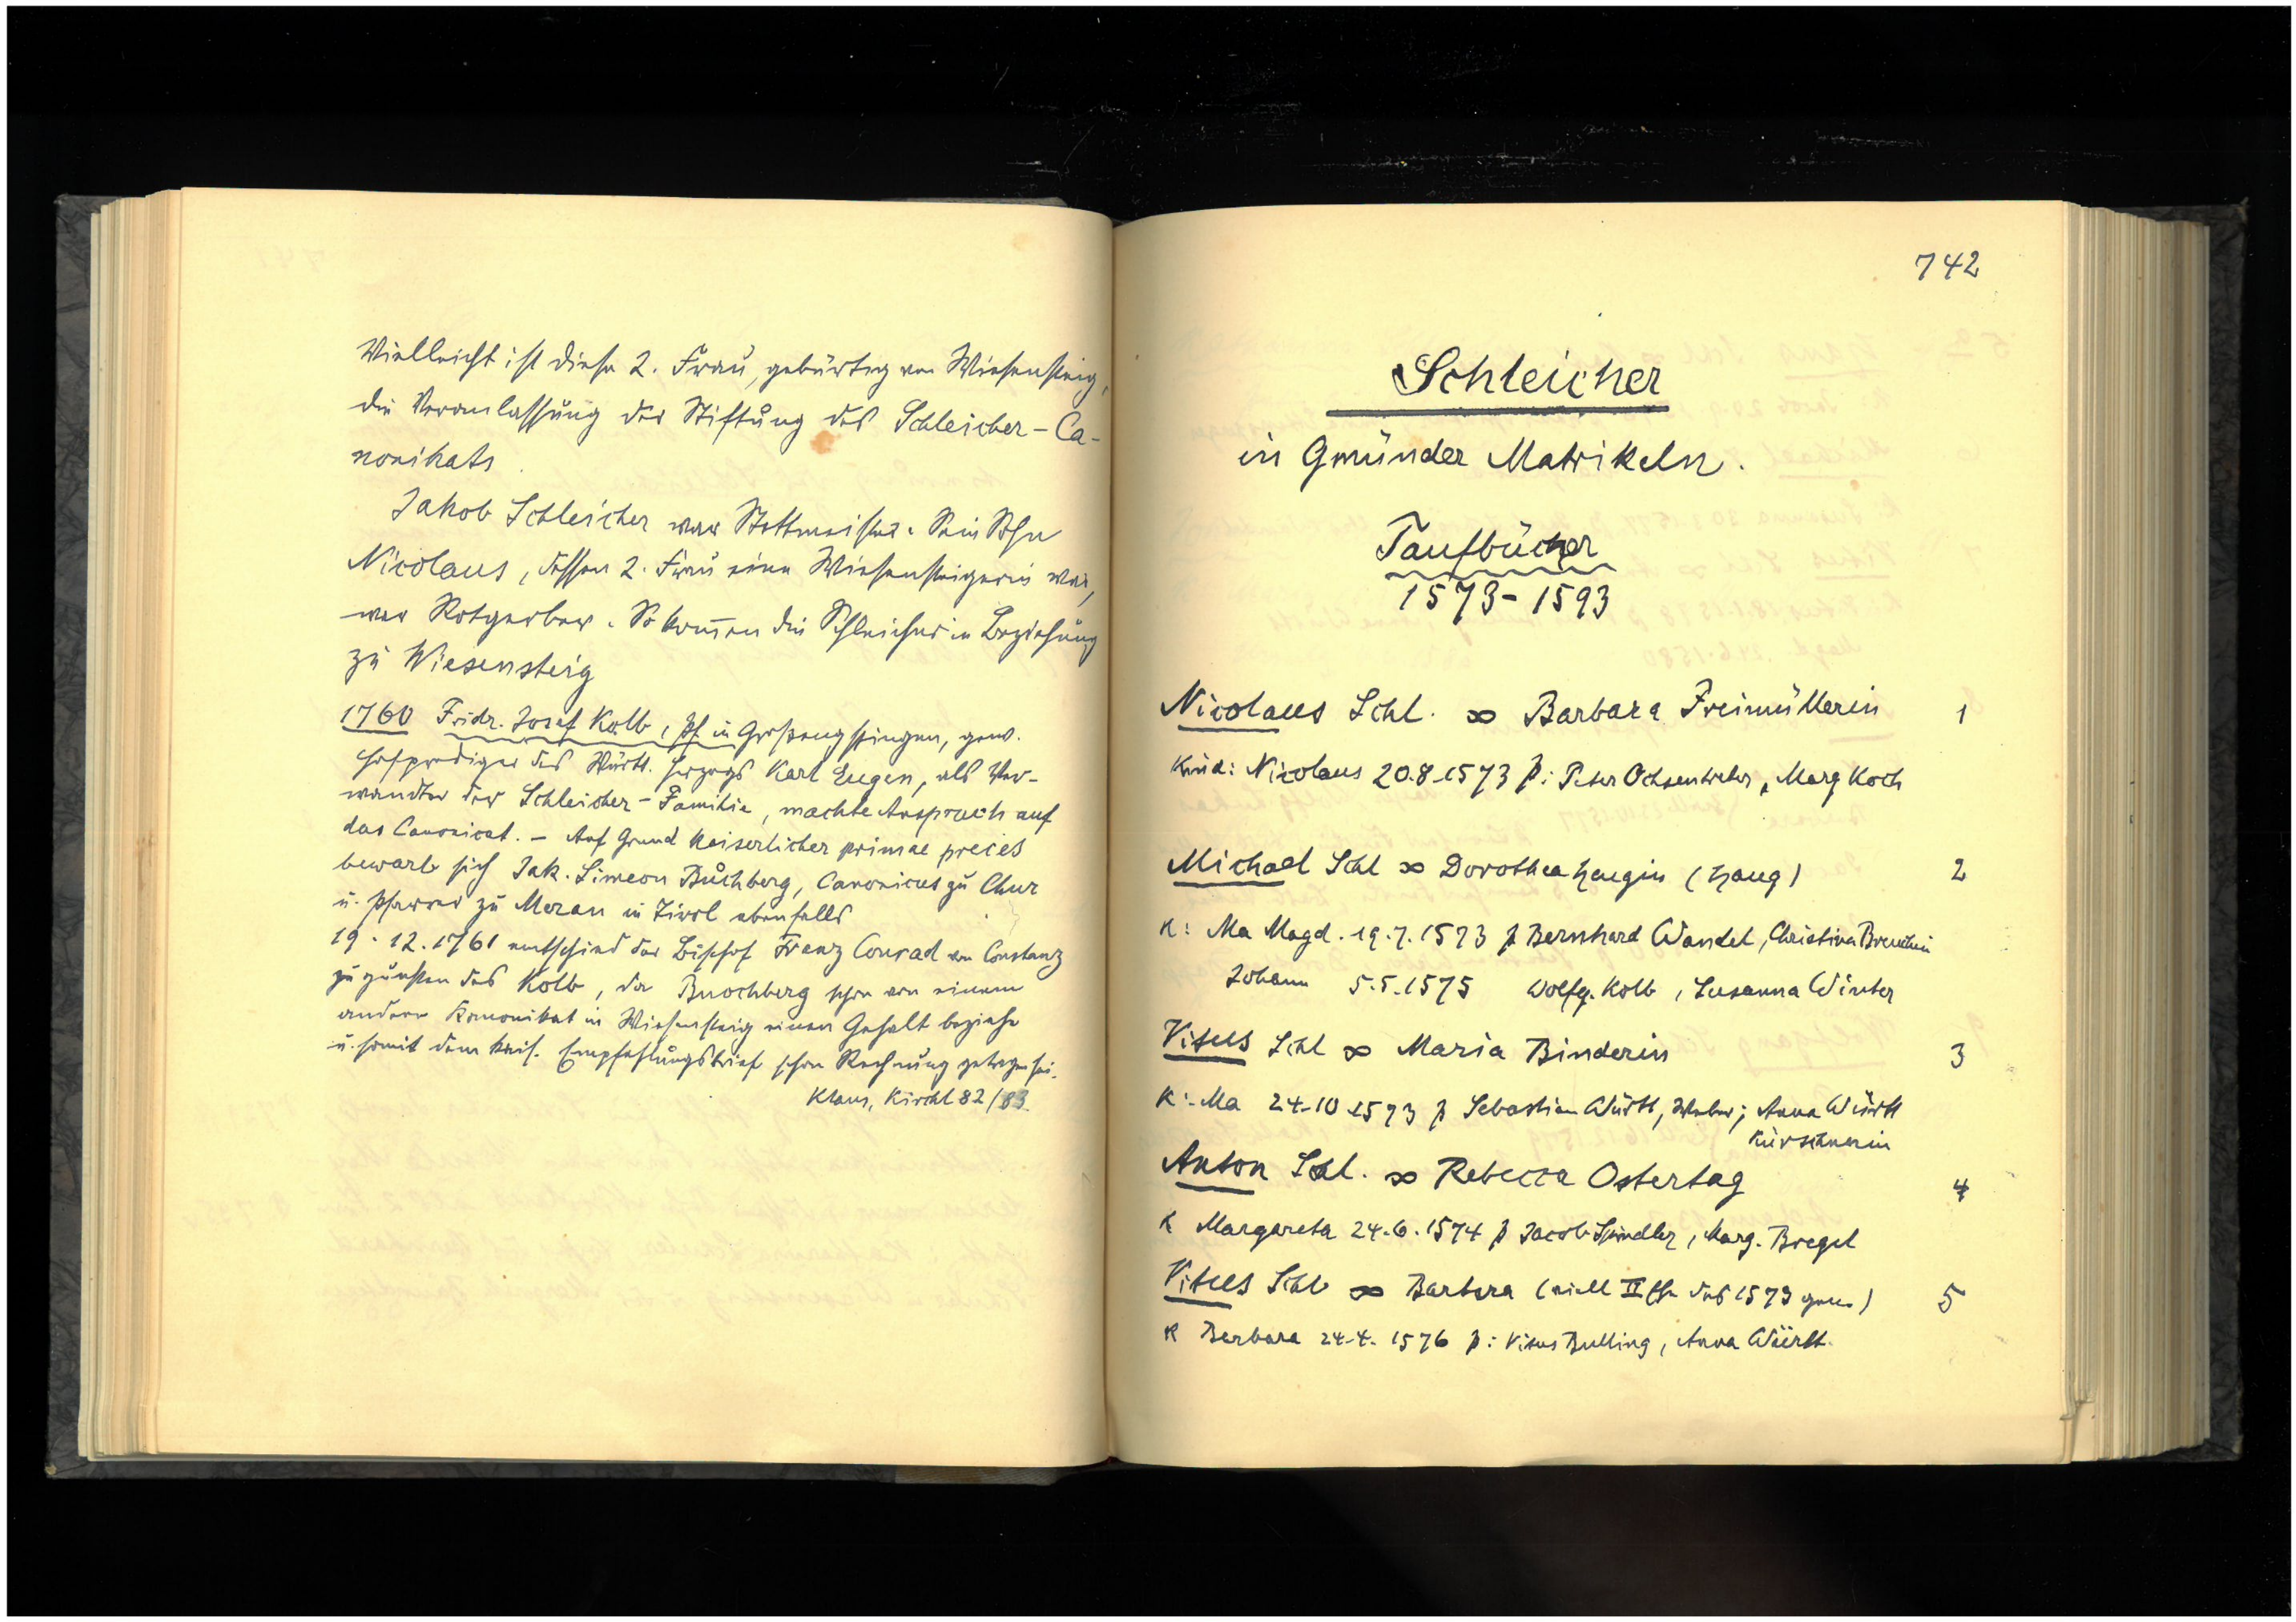 Vielleicht ist diese 2. Frau, gebürtig von Wiesensteig,
die Veranlassung der Stiftung des Schleicher-Ca-
nonikats.
Jakob Schleicher war Stettmeister. Sein Sohn
Nicolaus, dessen 2. Frau eine Wiesensteigerin war,
war Rotgerber. So kom̅en die Schleicher in Beziehung
zu Wiesensteig
1760 Fridr. Josef Kolb, Pf. in Großengstingen, gew.
Hofprediger des Württ. Herzogs Karl Eugen, als Ver-
wandter der Schleicher-Familie, machte Anspruch auf
das Canonicat. - Auf Grund Kaiserlicher primae preces
bewarb sich Jak. Simeon Buchberg, Canonicus zu Chur
u. Pfarrer zu Meran in Tirol ebenfalls
19.12.1761 entschied der Bischof Franz Conrad von Constanz
zu gunsten des Kolb, da Buochberg schon von einem
andern Kanonikat in Wiesensteig einen Gehalt beziehe
u. somit dem kais. Empfehlungsbrief schon Rechnung getragen sei.
Klaus, Kirchl 82/83
742
Schleicher
in Gmünder Matrikeln.
Taufbücher
1573-1593
Nicolaus Schl. ∞ Barbara Freimüllerin 1
Kind: Nicolaus 20.8.1573 p: Peter Ochsentreiber, Marg Koch
Michael Schl ∞ Dorothea Haugin (Haug) 2
K: Ma Magd. 19.7.1573 p Bernhard Wandel, Christina
Johann 5.5.1575 Wolfg. Kolb, Susanna Winter
Vitus Schl ∞ Maria Binderin 3
K: Ma 24.10.1573 p Sebastian Württ, Weber; Anna Württ
Kürschnerin
Anton Schl. ∞ Rebecca Ostertag 4
K Margareta 24.6.1574 p Jacob Spindler, Marg. Bregel
Vitus Schl ∞ Barbara (viell II Ehe des 1573 gen.) 5
K Barbara 24.4.1576 p: Vitus Bulling, Anna Württ.